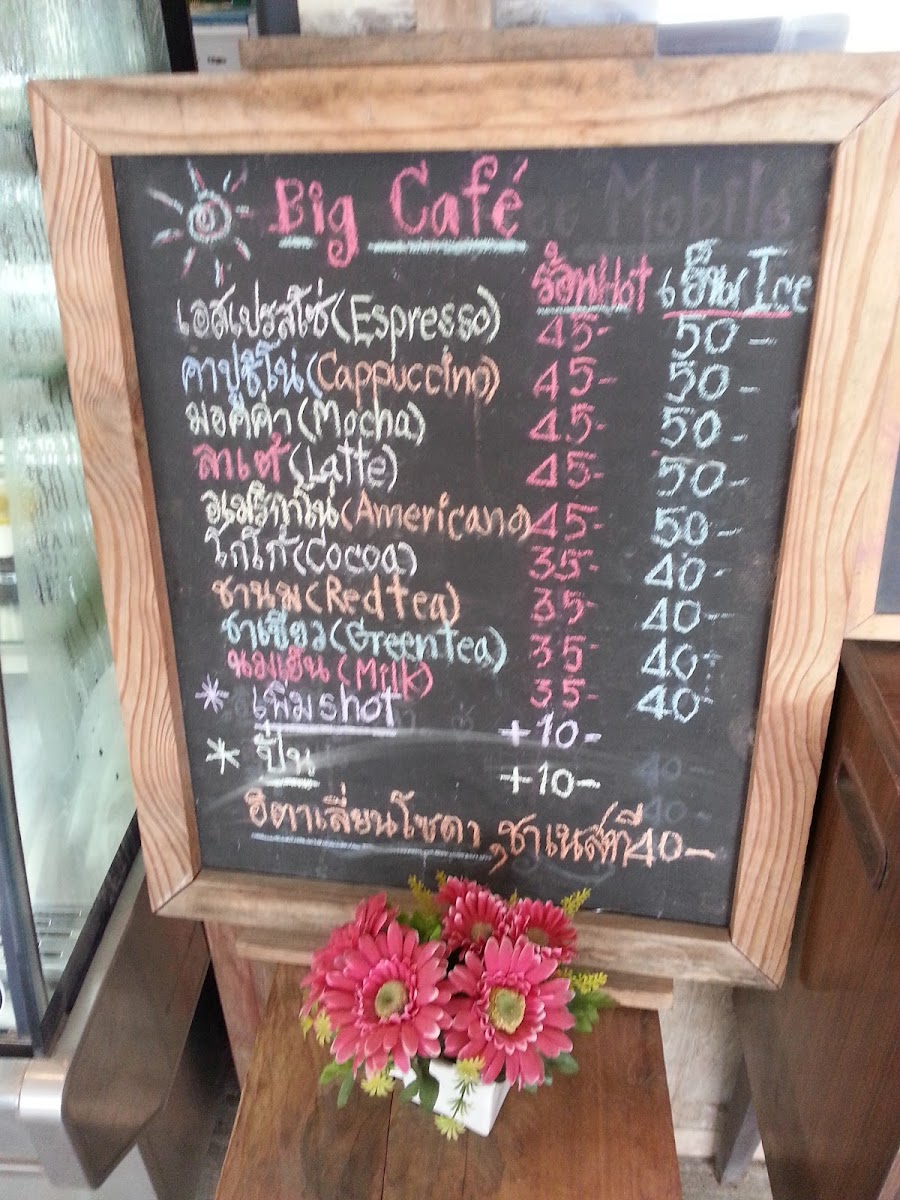 Big Café
ร้อน Hot เย็น Ice
เอสเปรสโซ่ (Espresso) 45- 50-
คาปูชิโน่ (Cappuccino) 45- 50-
มอคค่า (Mocha) 45- 50-
ลาเต้ (Latte) 45- 50-
อเมริกาโน่ (Americano) 45- 50-
โกโก้ (Cocoa) 35- 40-
ชานม (Red tea) 35- 40-
ชาเขียว (Green tea) 35- 40-
นมเย็น (Milk) 35- 40-
* เพิ่ม shot +10-
* ปั่น +10-
อิตาเลี่ยนโซดา, ชาเนสที 40-